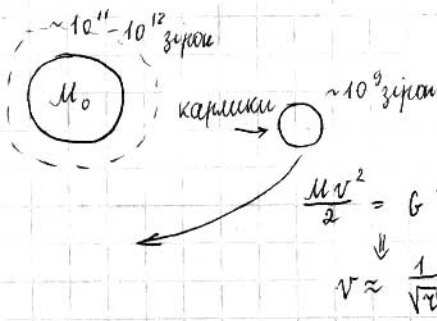 ~10¹¹-10¹² зірок
M₀
карлики
~10⁹ зірок
Mv²/2 = G
⇓
v ≈ 1/√r